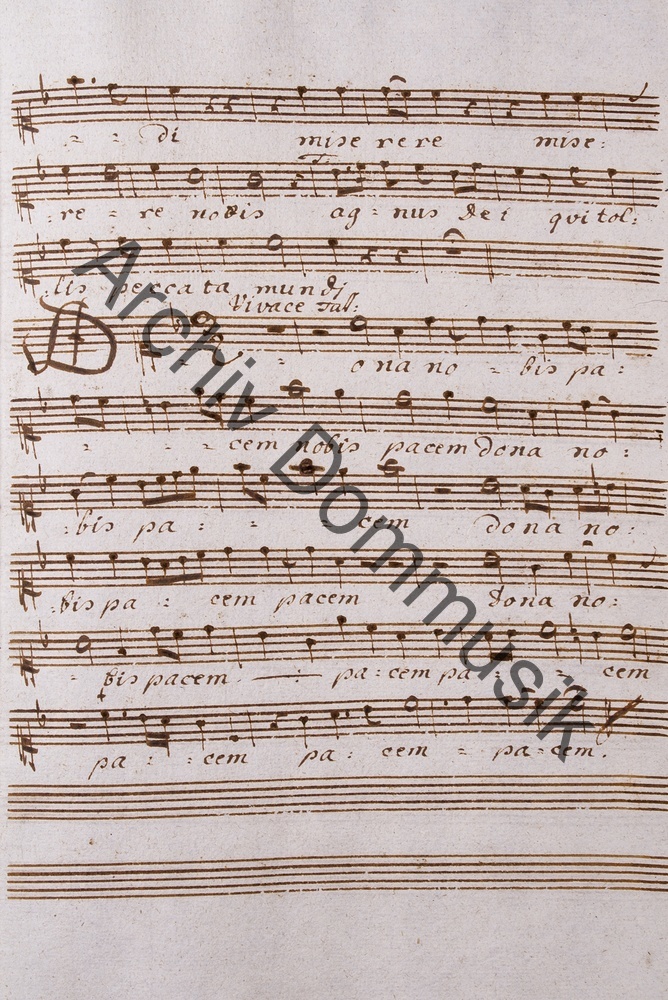 - - di mise rere mise:
:re - re nobis ag - nus dei qui tol:
lis pecca ta mundi
Vivace
D - ona no - bis pa:
- - - cem nobis pacem dona no:
:bis pa - - - cem dona no:
:bis pa - cem pacem dona no:
- bis pacem pa - cem pa - - - cem
pa - - cem pa - cem - pa - cem.
Archiv Dommusik